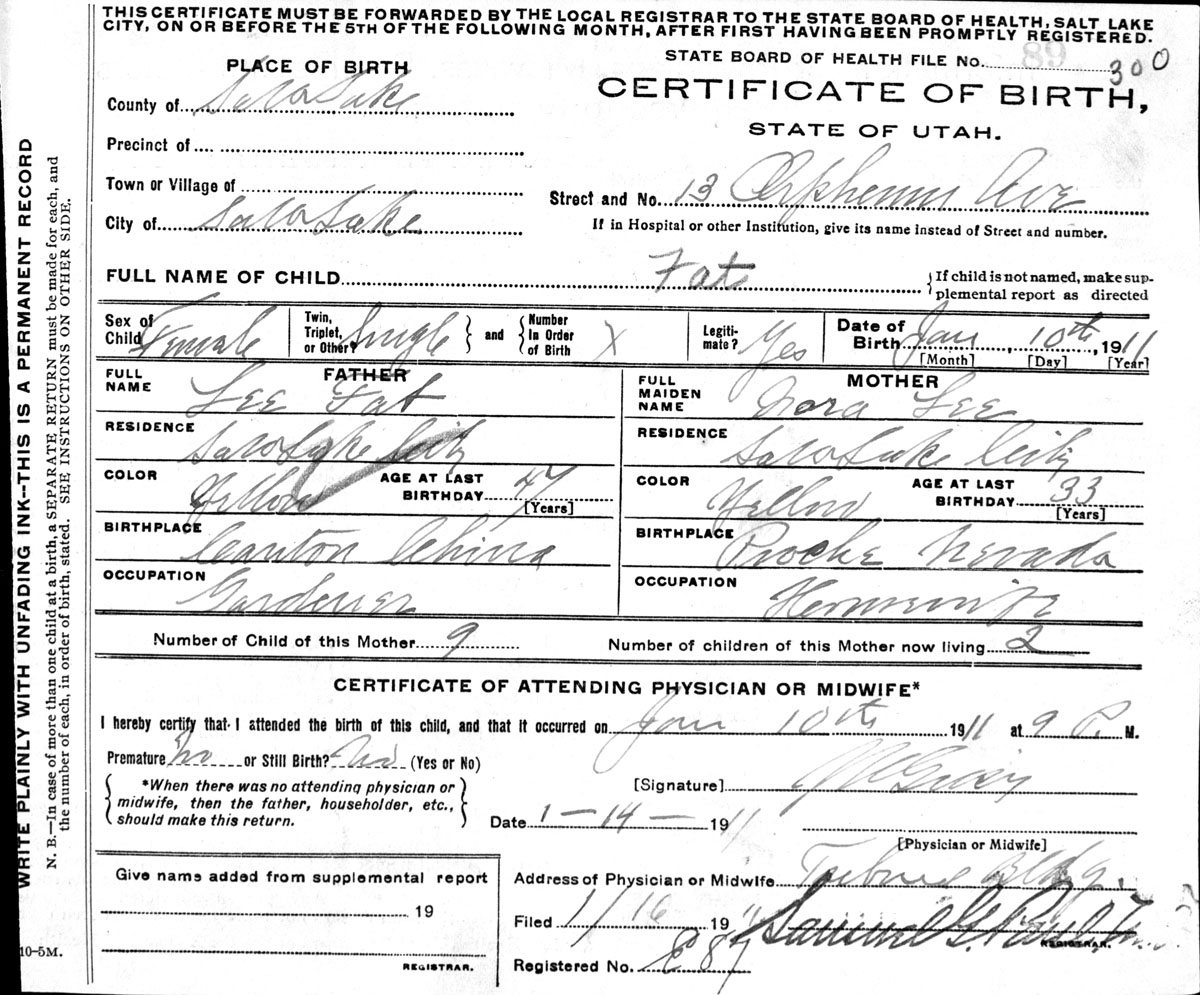 THIS CERTIFICATE MUST BE FORWARDED BY THE LOCAL REGISTRAR TO THE STATE BOARD OF HEALTH, SALT LAKE
CITY, ON OR BEFORE THE 5TH OF THE FOLLOWING MONTH, AFTER FIRST HAVING BEEN PROMPTLY REGISTERED.
STATE BOARD OF HEALTH FILE No. 89 300
CERTIFICATE OF BIRTH,
STATE OF UTAH.
PLACE OF BIRTH
County of Salt Lake
Precinct of
Town or Village of
City of Salt Lake
Street and No. 13 Orpheum Ave
If in Hospital or other Institution, give its name instead of Street and number.
FULL NAME OF CHILD Fat
{If child is not named, make sup-
plemental report as directed
Sex of Child Female
Twin, Triplet, or Other? Single } and { Number In Order of Birth X
Legiti-mate? Yes
Date of Birth Jan 10th, 1911
[Month] [Day] [Year]
FATHER
FULL NAME Lee Fat
RESIDENCE Salt Lake City
COLOR Yellow AGE AT LAST BIRTHDAY 47 [Years]
BIRTHPLACE Canton China
OCCUPATION Gardener
MOTHER
FULL MAIDEN NAME Nora Lee
RESIDENCE Salt Lake City
COLOR Yellow AGE AT LAST BIRTHDAY 33 [Years]
BIRTHPLACE Pioche Nevada
OCCUPATION Housewife
Number of Child of this Mother 9 Number of children of this Mother now living 2
CERTIFICATE OF ATTENDING PHYSICIAN OR MIDWIFE*
I hereby certify that I attended the birth of this child, and that it occurred on Jan 10th 1911 at 9 P. M.
Premature No or Still Birth? No (Yes or No)
{ *When there was no attending physician or
midwife, then the father, householder, etc.,
should make this return. }
[Signature]
Date 1-14-1911
[Physician or Midwife]
Address of Physician or Midwife Tribune Bldg.
Filed 1/16 1911 Samuel G. Paul
REGISTRAR.
Registered No. E 87
Give name added from supplemental report
19
REGISTRAR.
WRITE PLAINLY WITH UNFADING INK--THIS IS A PERMANENT RECORD
N. B.—In case of more than one child at a birth, a SEPARATE RETURN must be made for each, and
the number of each, in order of birth, stated. SEE INSTRUCTIONS ON OTHER SIDE.
10-5M.